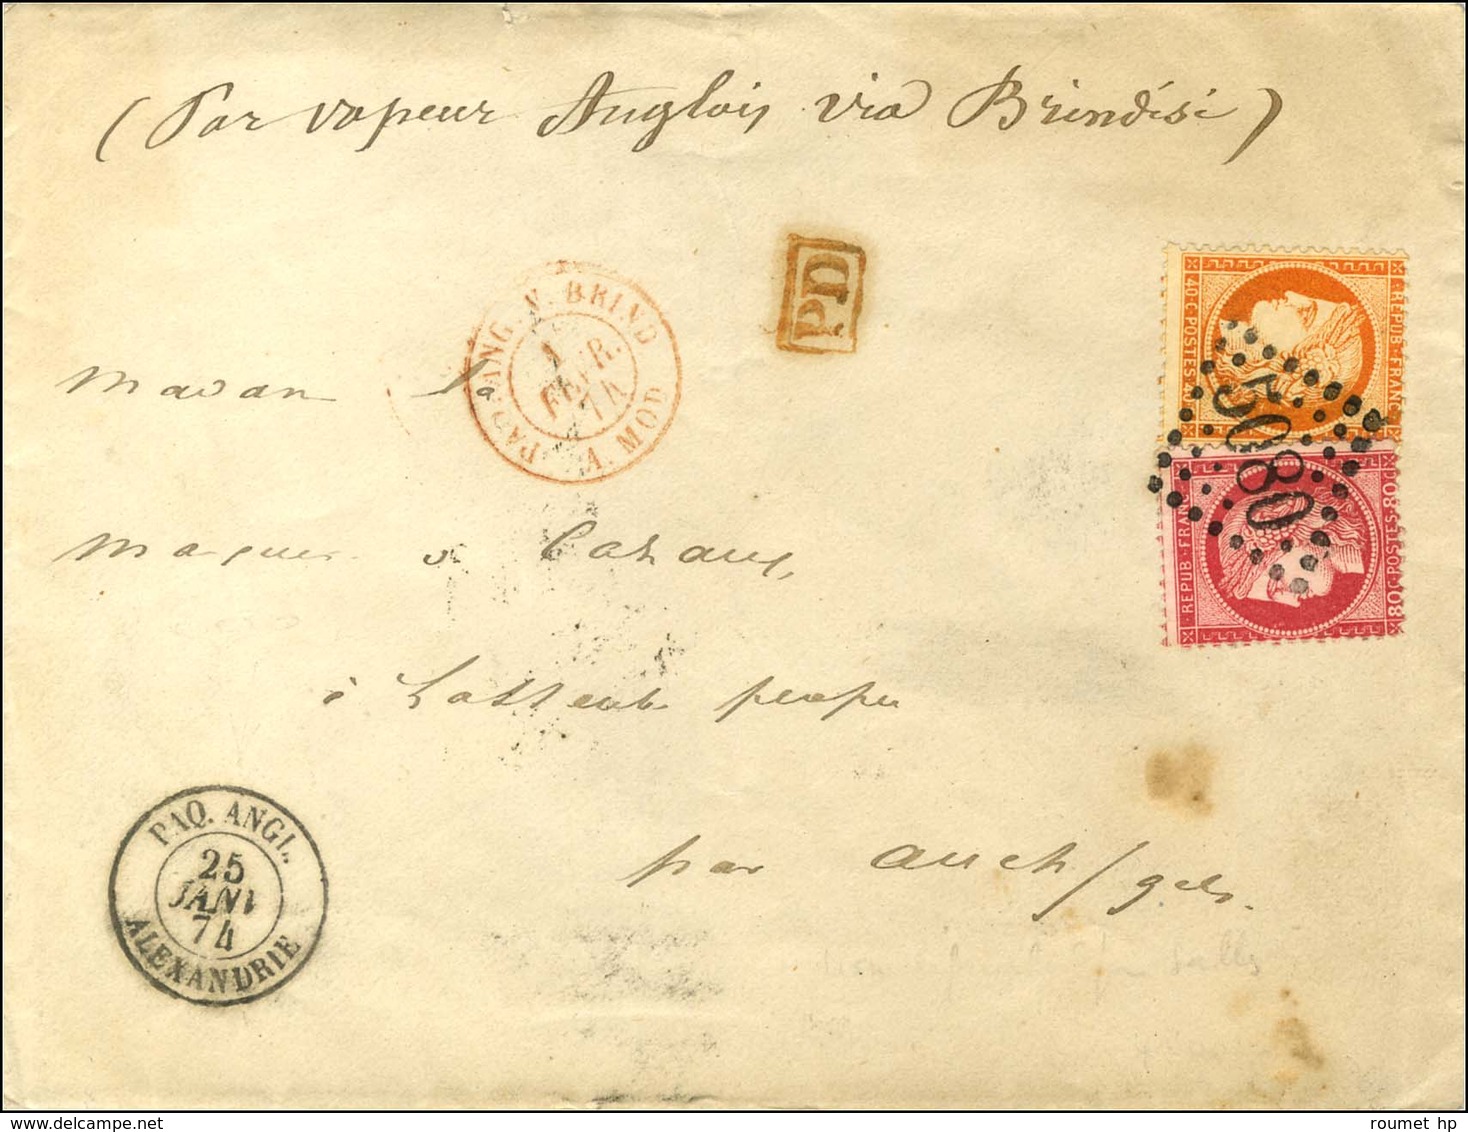 (Par vapeur Anglais via Brindisi)
PD
PAQ. ANG. V. BRIND
A. MOD
1
FEVR.
74
REPUB·FRANC
40·C·POSTES·40
5080
REPUB·FRANC
80C·POSTES·80C
Madame
Marquise de
à
par Auch / gers.
PAQ. ANGL.
25
JANV
74
ALEXANDRIE
www.delcampe.net
roumet hp